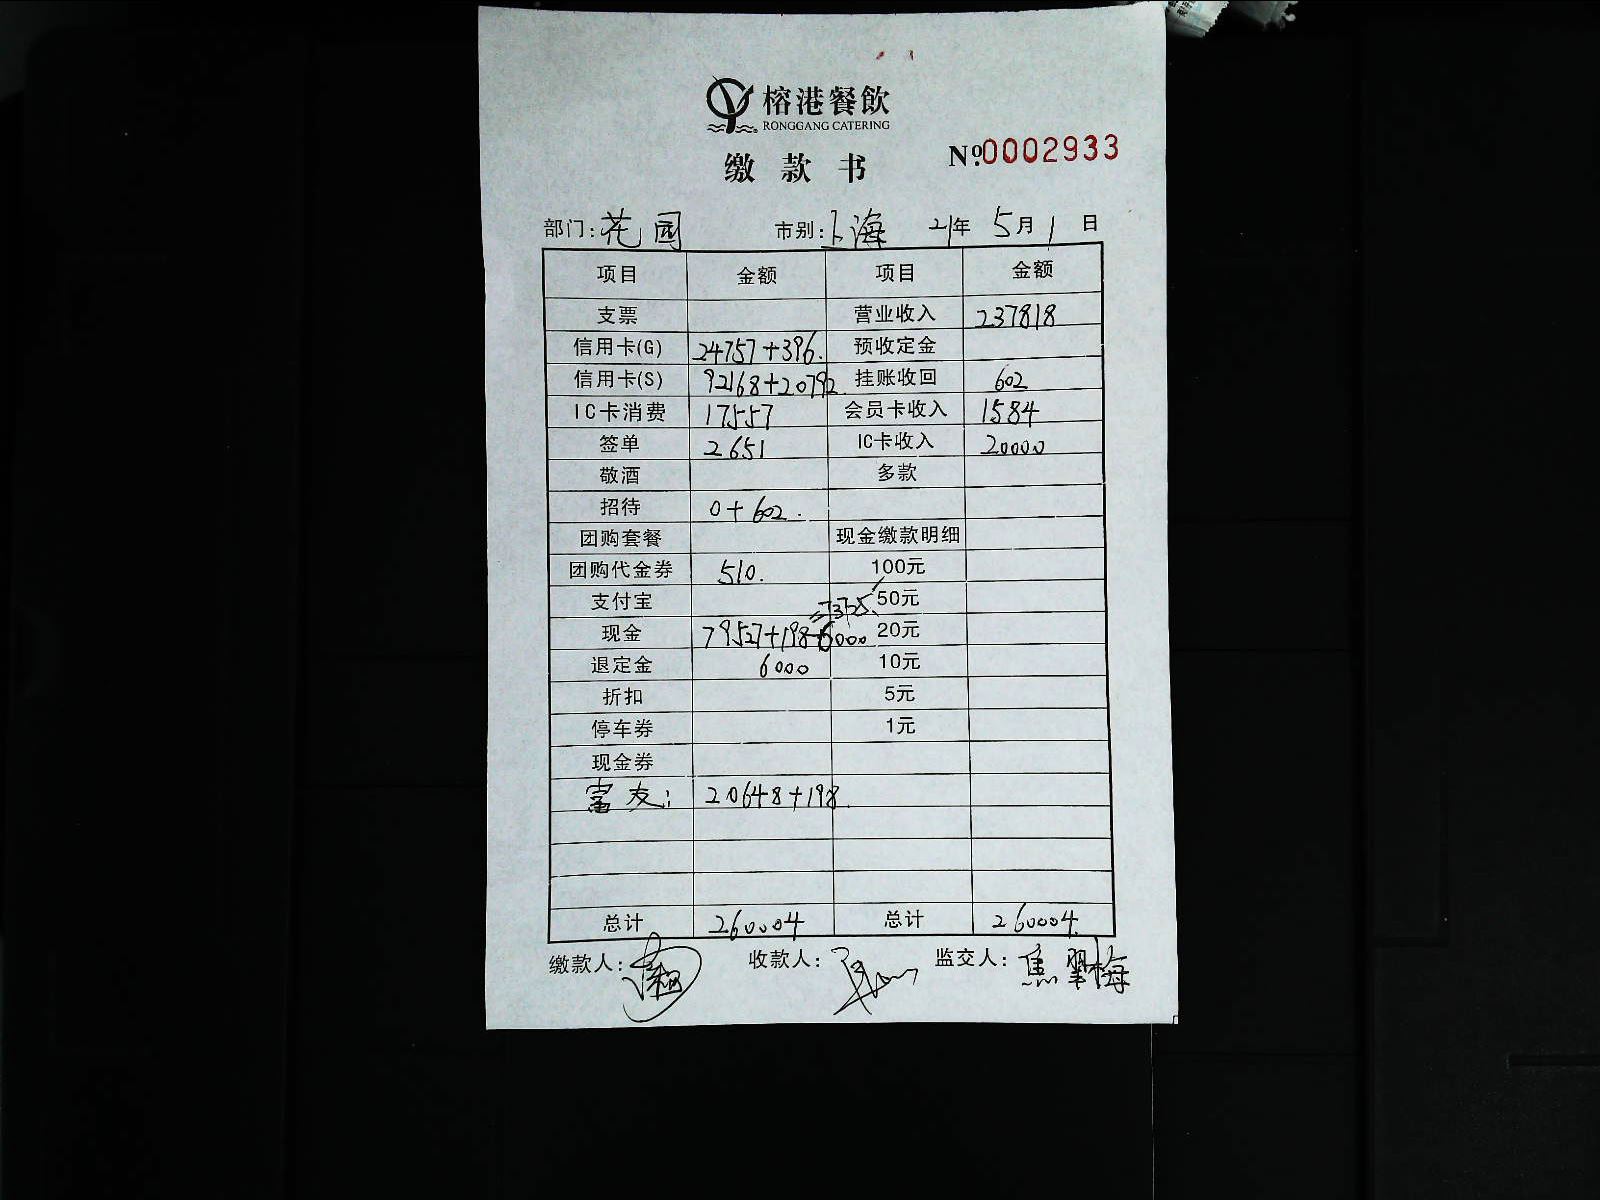 榕港餐飲
RONGGANG CATERING
缴款书 №0002933
部门:花园 市别:上海 21年5月1日
项目 金额 项目 金额
支票 营业收入 237818
信用卡(G) 24757+396. 预收定金
信用卡(S) 92168+20792. 挂账收回 602
IC卡消费 17557 会员卡收入 1584
签单 2651 IC卡收入 20000
敬酒 多款
招待 0+602.
团购套餐 现金缴款明细
团购代金券 510. 100元
支付宝 =73725. 50元
现金 79527+198-6000 20元
退定金 6000 10元
折扣 5元
停车券 1元
现金券
富友: 20648+198.
总计 260004 总计 260004.
缴款人: 收款人: 监交人:焦翠梅